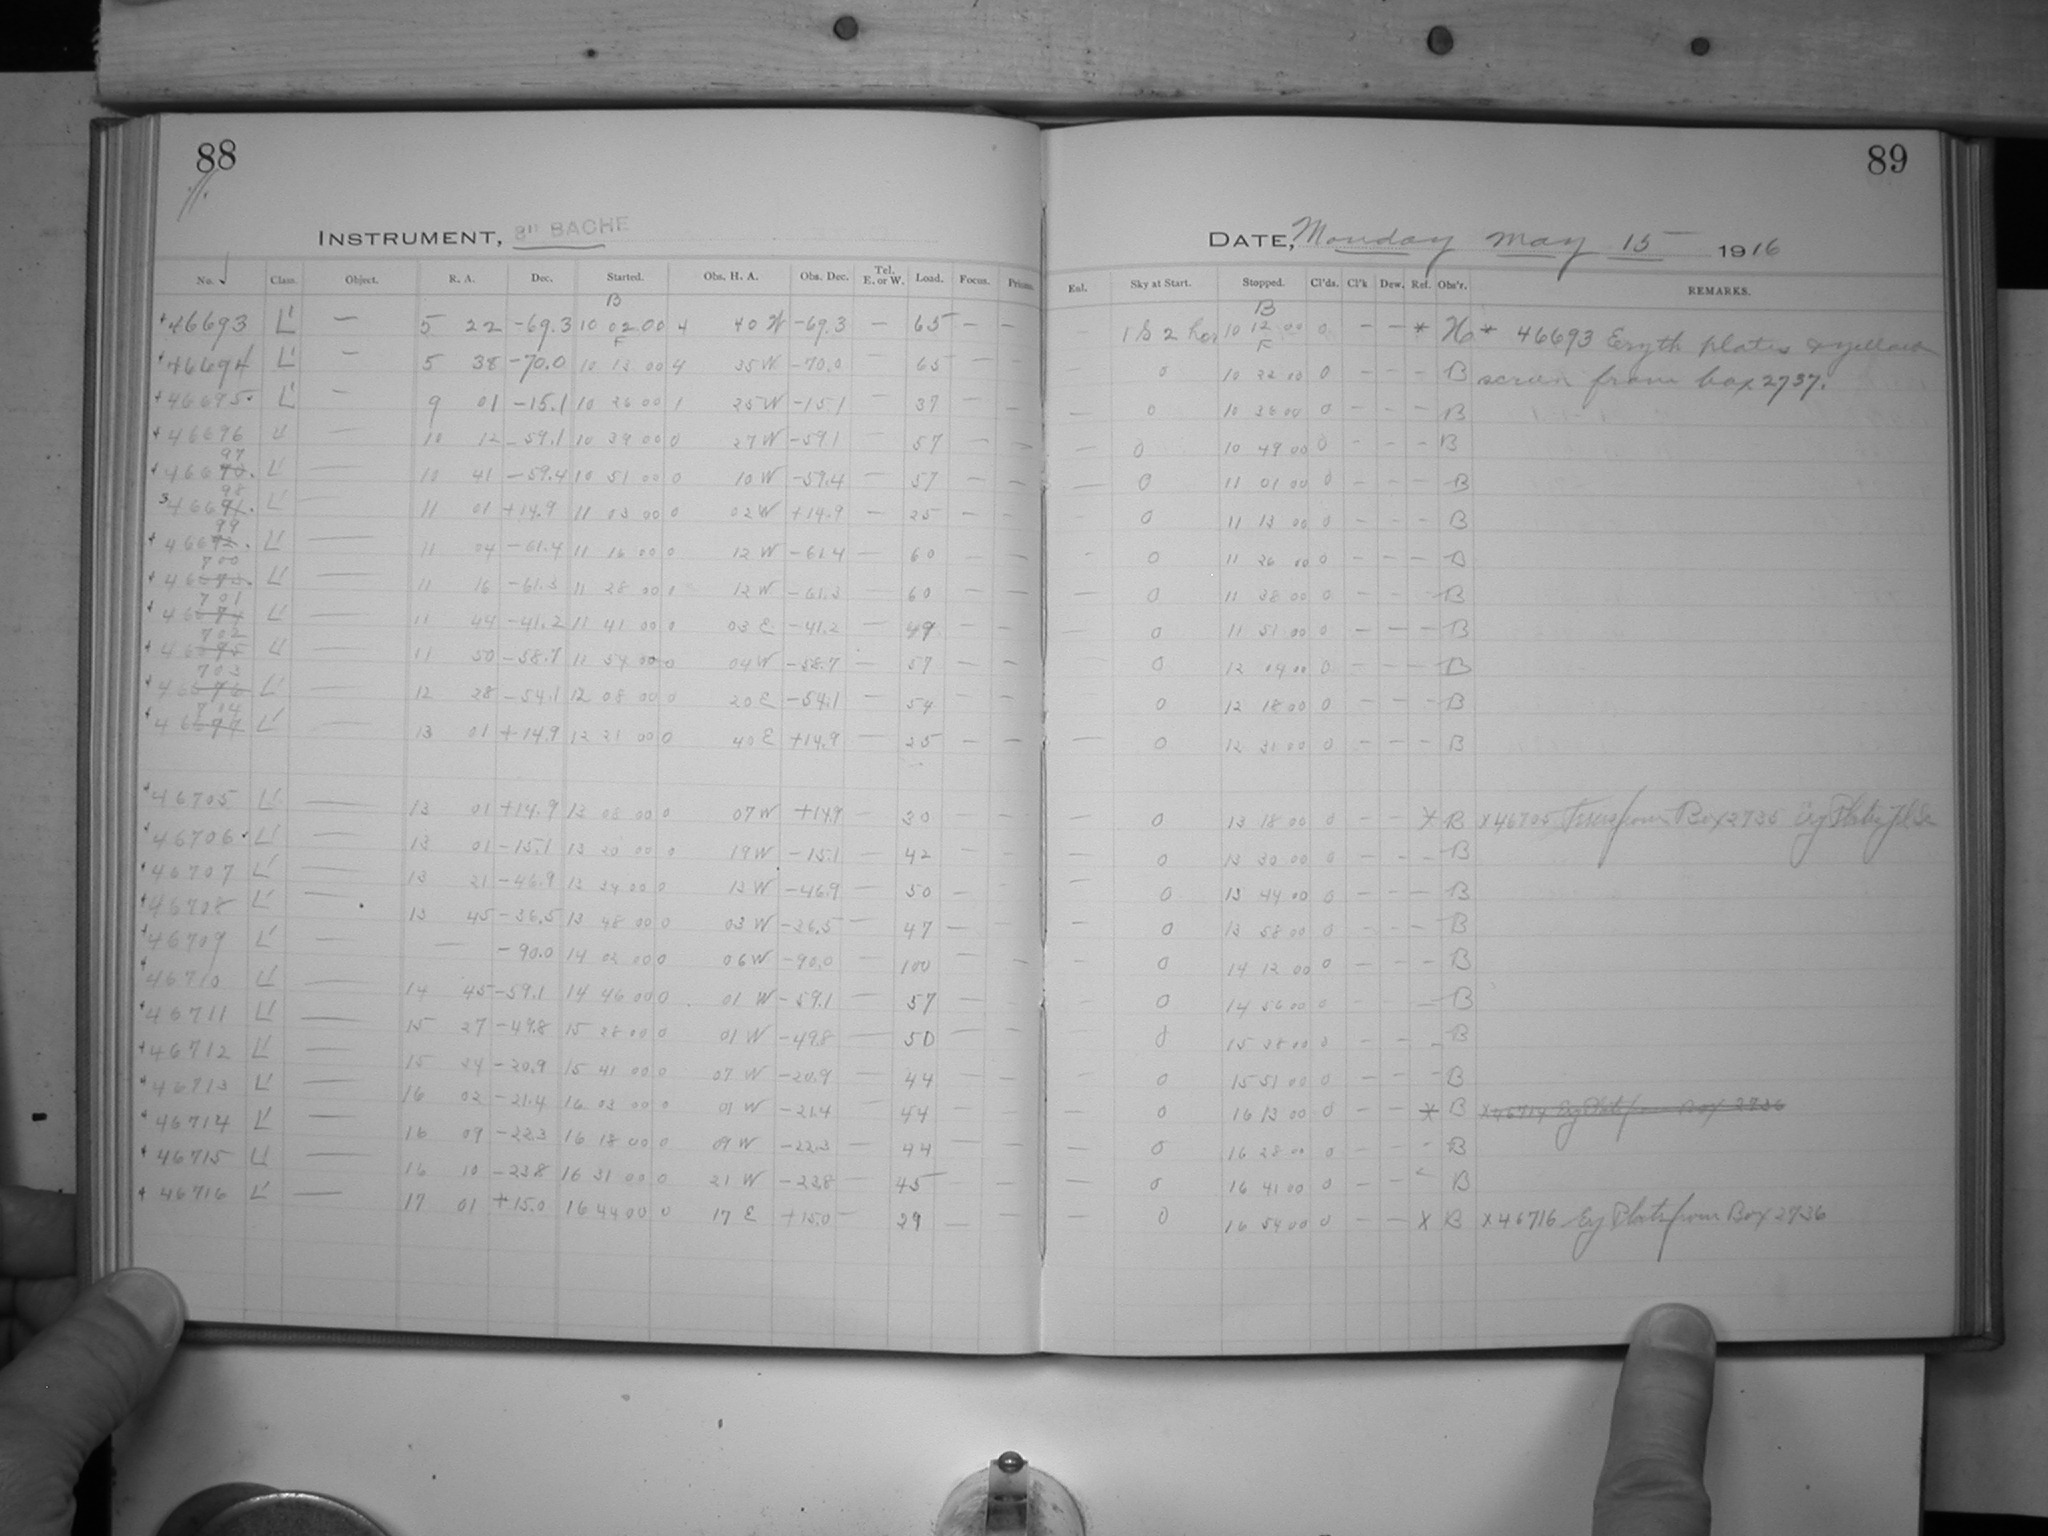 88
89
INSTRUMENT, 8" BACHE
DATE, Monday May 15 1916
No. Class. Object. R. A. Dec. Started. Obs. H. A. Obs. Dec. Tel. E. or W. Load. Focus. Prisms.
Eul. Sky at Start. Stopped. Cl'ds. Cl'k Dew. Ref. Obs'r. REMARKS.
46693 L' — 5 22 -69.3 10 02 00 4 40 W -69.3 — 65 — — 10 12 00 0 — — * * 46693 Eryth plates & yellow
46694 L' — 5 38 -70.0 10 12 00 4 35 W -70.0 — 65 — — — 0 10 22 00 0 — — — B screen from box 2737.
46695 L' — 9 01 -15.1 10 26 00 1 25 W -15.1 — 37 — — — 0 10 36 00 0 — — — B
46696 L' — 10 12 -59.1 10 39 00 0 27 W -59.1 — 57 — — — 0 10 49 00 0 — — — B
46697 L' — 10 41 -59.4 10 51 00 0 10 W -59.4 — 57 — — — 0 11 01 00 0 — — — B
46698 L' — 11 01 +14.9 11 03 00 0 02 W +14.9 — 25 — — 0 11 13 00 0 — — — B
46699 L' — 11 04 -61.4 11 16 00 0 12 W -61.4 — 60 — — — 0 11 26 00 0 — — — B
46700 L' — 11 16 -61.3 11 28 00 0 12 W -61.3 — 60 — — — 0 11 38 00 0 — — — B
46701 L' — 11 44 -41.2 11 41 00 0 03 E -41.2 — 49 — — — 0 11 51 00 0 — — — B
46702 L' — 11 50 -58.7 11 54 00 0 04 W -58.7 — 57 — — — 0 12 04 00 0 — — — B
46703 L' — 12 28 -54.1 12 08 00 0 20 E -54.1 — 54 — — 0 12 18 00 0 — — — B
46704 L' — 13 01 +14.9 12 21 00 0 40 E +14.9 — 25 — — — 0 12 31 00 0 — — — B
46705 L' — 13 01 +14.9 13 08 00 0 07 W +14.9 — 30 — — — 0 13 18 00 0 — — X B X 46705 from Box 2735
46706 L' — 13 01 -15.1 13 20 00 0 19 W -15.1 — 42 — — — 0 13 30 00 0 — — — B
46707 L' — 13 21 -46.9 13 34 00 0 13 W -46.9 — 50 — — — 0 13 44 00 0 — — — B
46708 L' — 13 45 -36.5 13 48 00 0 03 W -36.5 — 47 — — — 0 13 58 00 0 — — — B
46709 L' — — -90.0 14 02 00 0 06 W -90.0 — 100 — — — 0 14 12 00 0 — — — B
46710 L' — 14 45 -59.1 14 46 00 0 01 W -59.1 — 57 — — 0 14 56 00 0 — — — B
46711 L' — 15 27 -49.8 15 28 00 0 01 W -49.8 — 50 — — — 0 15 38 00 0 — — — B
46712 L' — 15 34 -20.9 15 41 00 0 07 W -20.9 — 44 — — 0 15 51 00 0 — — — B
46713 L' — 16 02 -21.4 16 03 00 0 01 W -21.4 — 44 — — 0 16 13 00 0 — — X B X 46714 Ery Plate from Box 2736
46714 L' — 16 09 -22.3 16 18 00 0 09 W -22.3 — 44 — — — 0 16 28 00 0 — — — B
46715 L' — 16 10 -23.8 16 31 00 0 21 W -23.8 — 45 — — — 0 16 41 00 0 — — — B
46716 L' — 17 01 +15.0 16 44 00 0 17 E +15.0 — 29 — — — 0 16 54 00 0 — — X B X 46716 Ery Plate from Box 2736